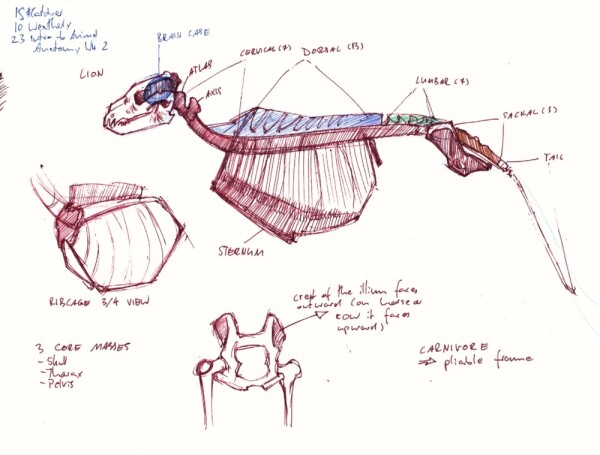 10 Weatherly
23 Intro to Animal
Anatomy Wk 2
BRAIN CASE
LION
ATLAS
AXIS
CERVICAL (7)
DORSAL (13)
LUMBAR (7)
SACRAL (3)
TAIL
STERNUM
RIBCAGE 3/4 VIEW
crest of the illium faces
outward (on horse or
cow it faces
upwards)
3 CORE MASSES
- Skull
- Thorax
- Pelvis
CARNIVORE
⇒ pliable frame